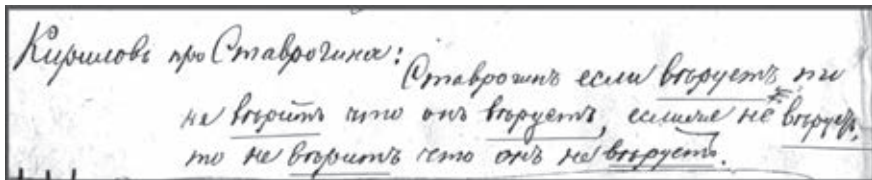 Кириловъ про Ставрогина:
Ставрогинъ если вѣруетъ, то
не вѣритъ что онъ вѣруетъ, если же не вѣруетъ,
то не вѣритъ что онъ не вѣруетъ.